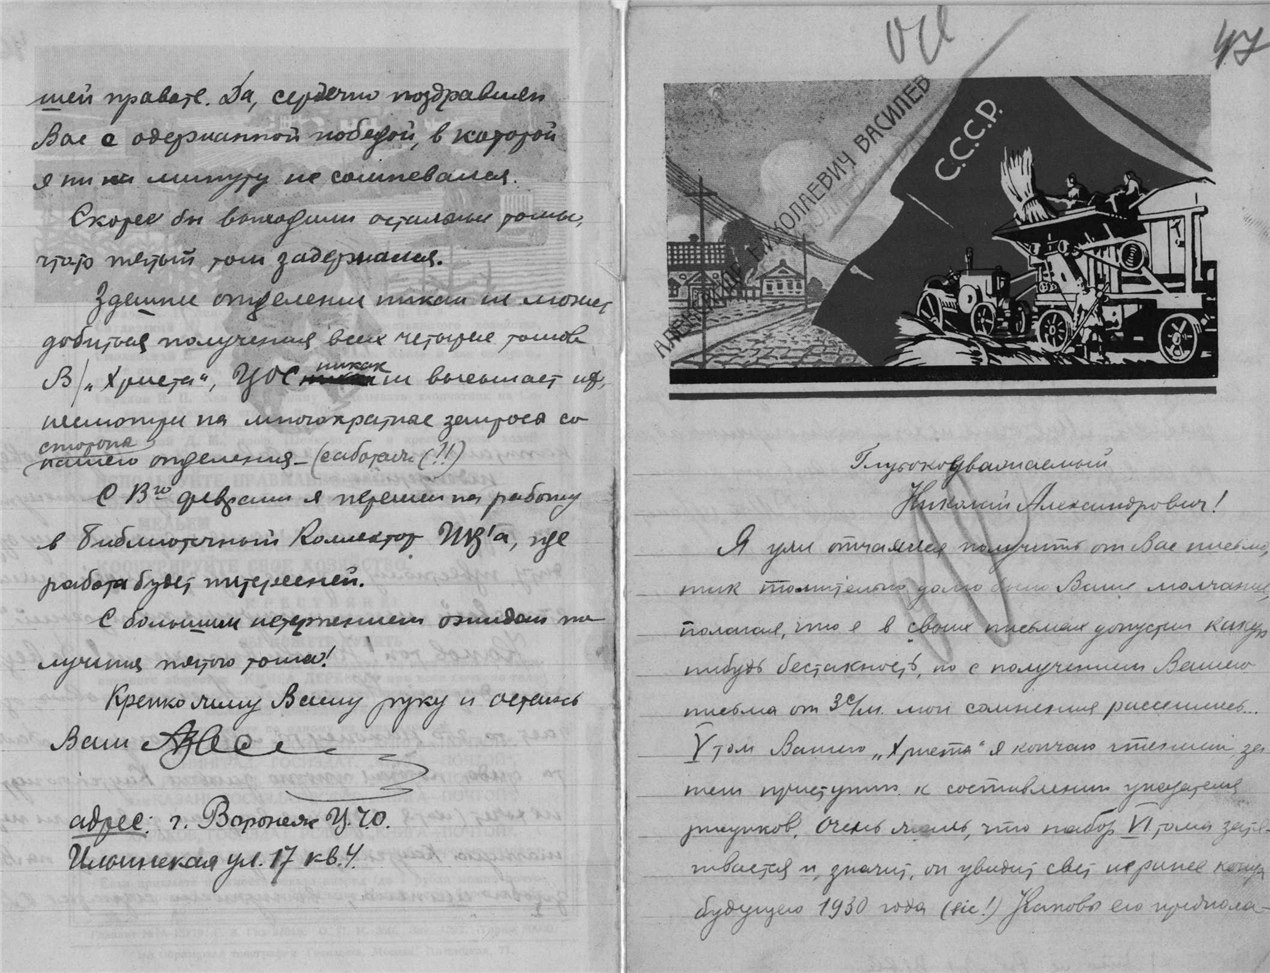 шей правоте. Да, сердечно поздравляем
Вас с одержанной победой, в которой
я ни на минуту не сомневался.
Скорее бы выходили остальные томы,
что-то пятый том задержался.
Здешнее отделение никак не может
добиться получения всех четырех томов
В/ „Христа", никак не высылает их,
несмотря на многократные запросы со
стороны
нашего отделения – (работаем (?!)
С 8го февраля я перешел на работу
в Библиотечный Коллектор Гиз'а, где
работа будет интересней.
С большим нетерпением ожидаю по-
лучения пятого тома!
Крепко жму Вашу руку и остаюсь
Ваш
адрес: г. Воронеж Ц.Ч.О.
Ильинская ул. 17 кв. 4.
47
АЛЕКСАНДР НИКОЛАЕВИЧ ВАСИЛЕВ
С.С.С.Р.
Глубокоуважаемый
Николай Александрович!
Я уже отчаялся получить от Вас письмо,
так томительно долго было Ваше молчание,
полагая, что я в своих письмах допустил какую
нибудь бестактность, но с получением Вашего
письма от мои сомнения рассеялись..
V том Вашего „Христа" я кончаю чтением, за-
тем приступлю к составлению указателя
рисунков. Очень жаль, что набор VI тома затя-
гивается и, значит, он увидит свет не ранее конца
будущего 1930 года (sic!) Каковы его предпола-